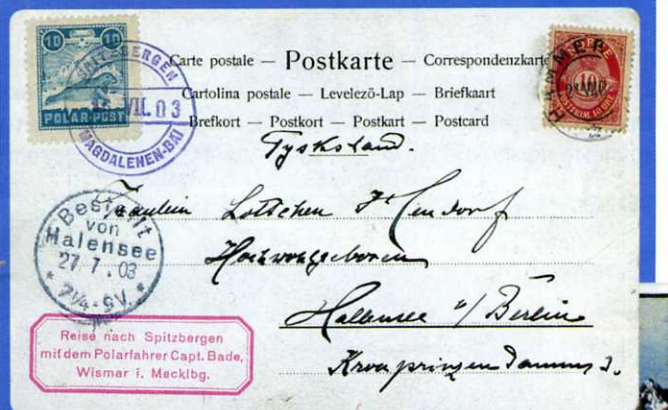 10 10
POLAR-POST
SPITZBERGEN
VII. 03
MAGDALENEN-BAI
Carte postale — Postkarte — Correspondenzkarte
Cartolina postale — Levelező-Lap — Briefkaart
Brefkort — Postkort — Postkart — Postcard
HAMMER
NORGE
10
POSTFRIM. 10 ØRE
Tyskland.
Fräulein Lottchen
Hochwohlgeboren
Halensee a/ Berlin
Kronprinzendamm 3.
Bestellt
von
Halensee
27. 7. 03
7¼-8V.
Reise nach Spitzbergen
mit dem Polarfahrer Capt. Bade,
Wismar i. Mecklbg.